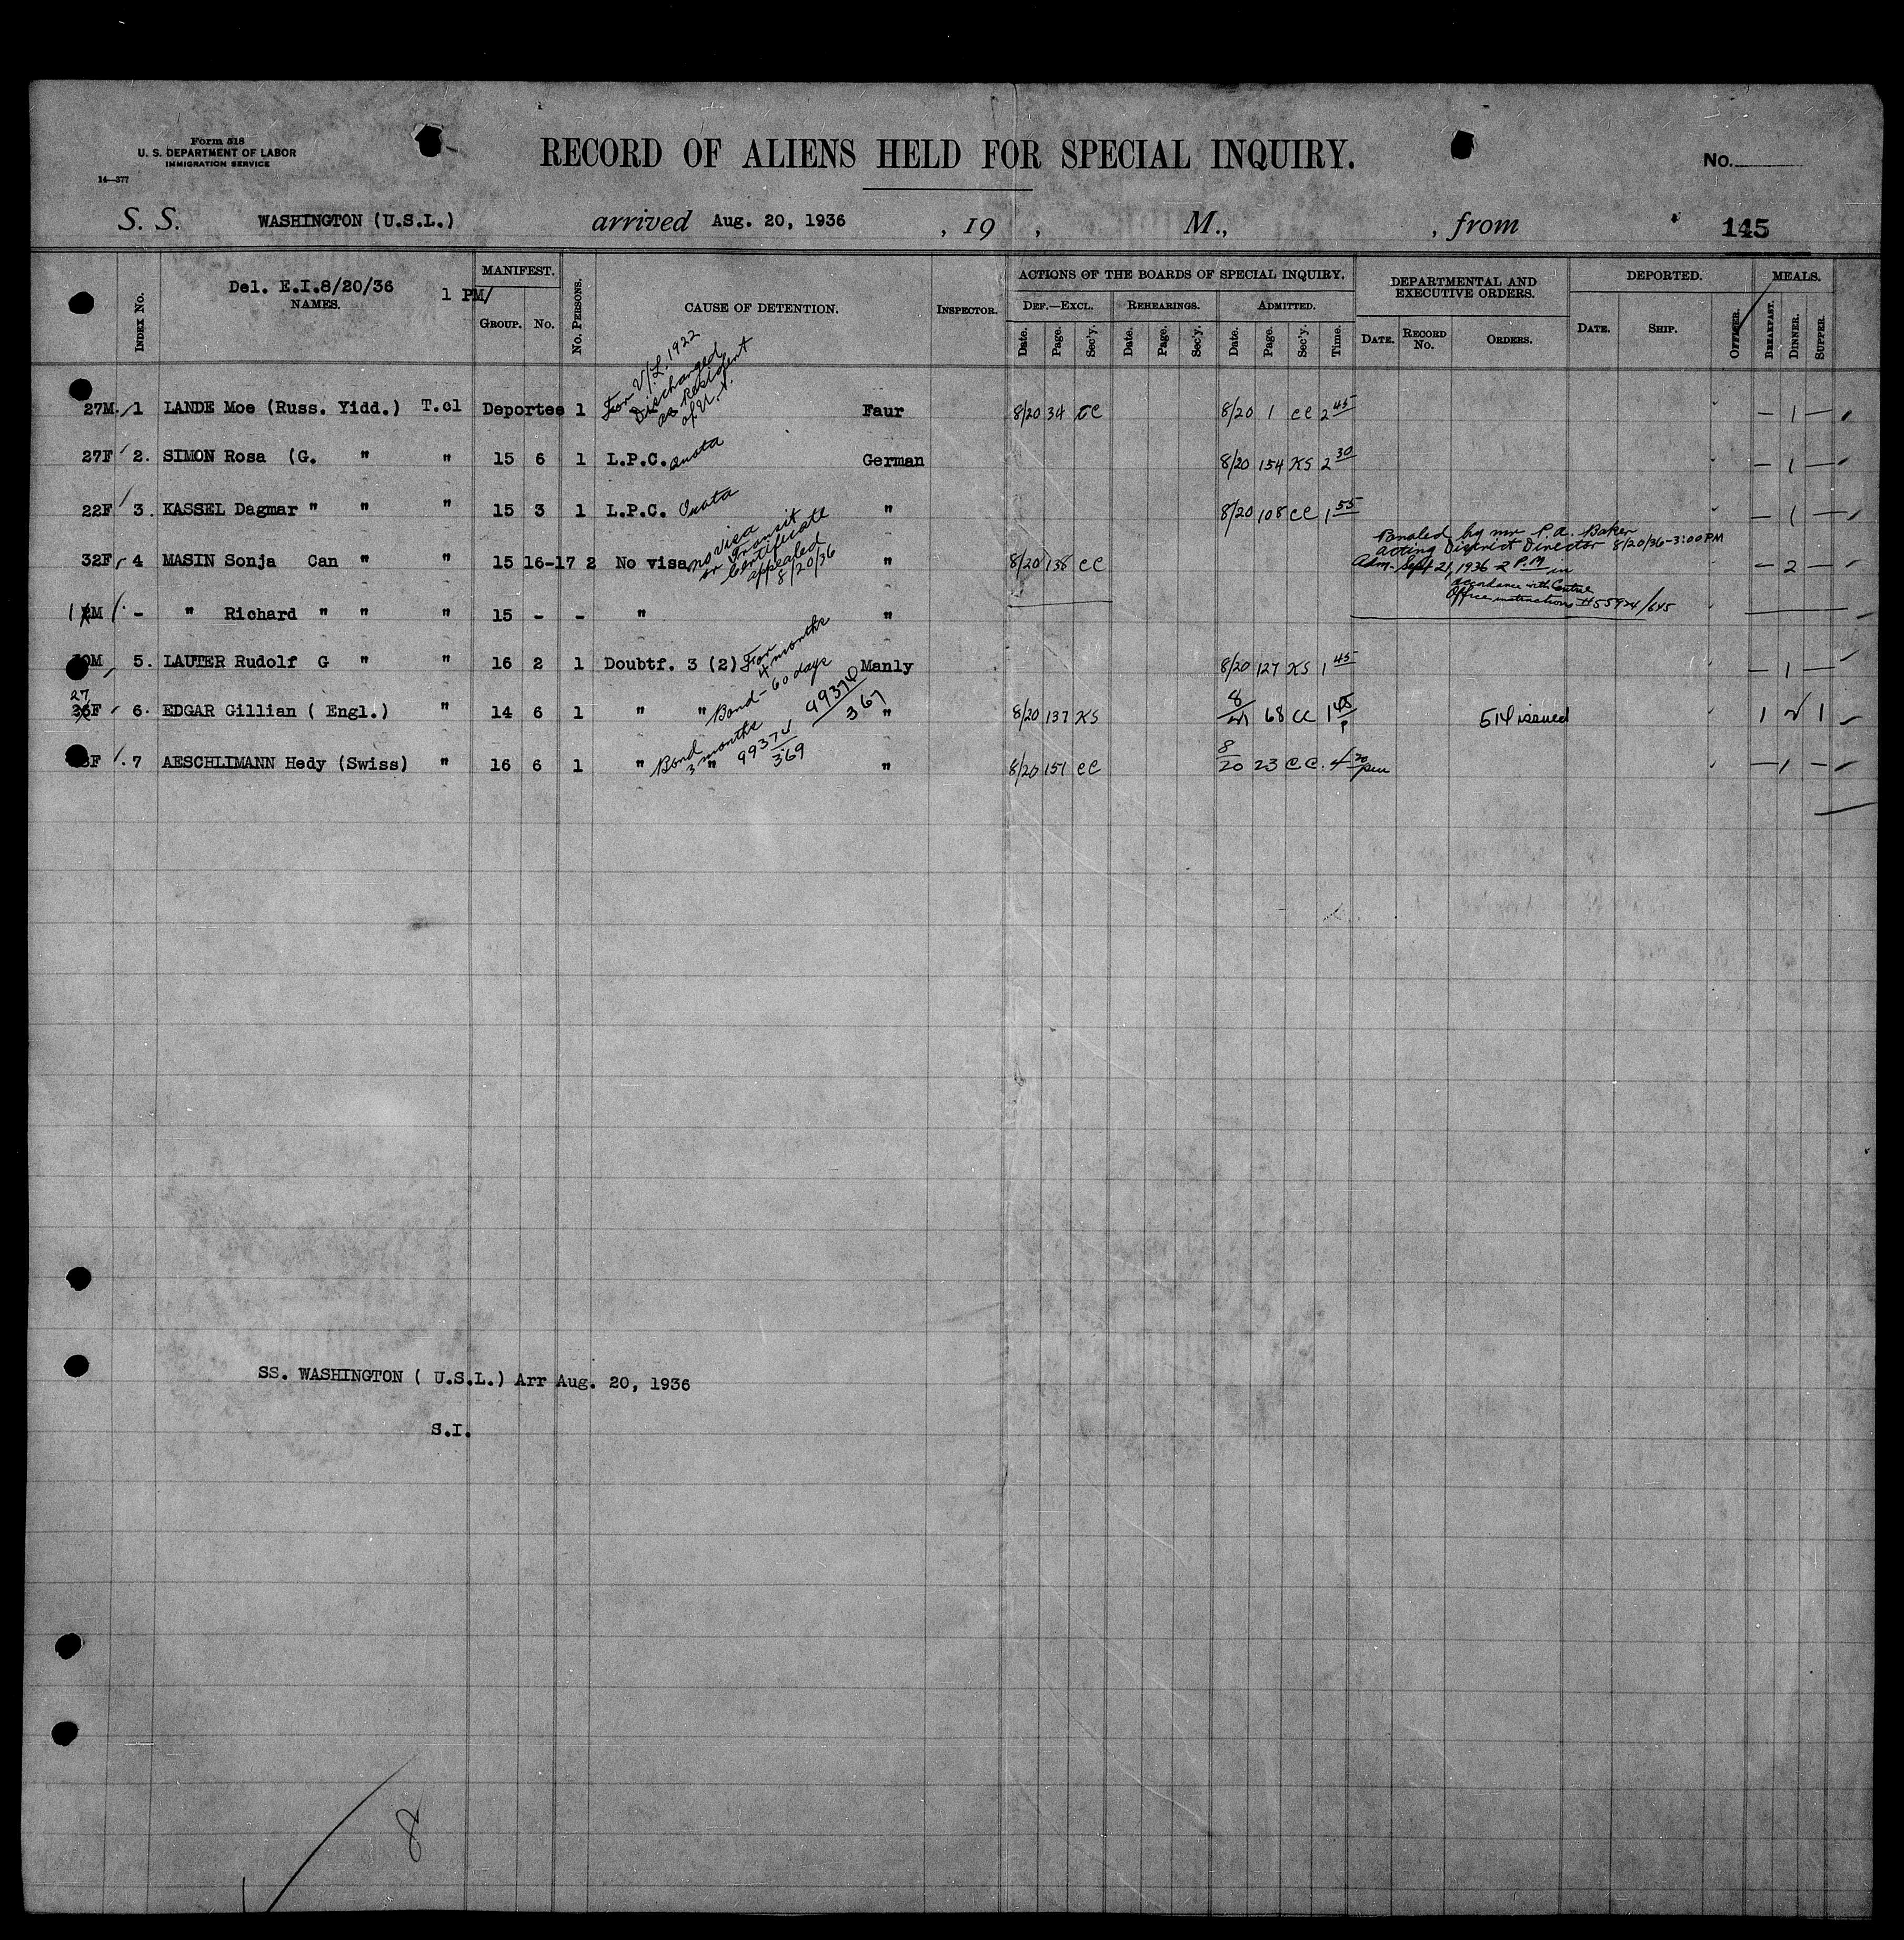 Form 518
U. S. DEPARTMENT OF LABOR
IMMIGRATION SERVICE
14—377
RECORD OF ALIENS HELD FOR SPECIAL INQUIRY.
No.
S. S. WASHINGTON (U.S.L.) arrived Aug. 20, 1936 , 19 , M., , from 145
Del. E.I.8/20/36 1 PM/
INDEX No. NAMES. MANIFEST. GROUP. No. No. PERSONS. CAUSE OF DETENTION. INSPECTOR. ACTIONS OF THE BOARDS OF SPECIAL INQUIRY. DEF.—EXCL. Date. Page. Sec'y. REHEARINGS. Date. Page. Sec'y. ADMITTED. Date. Page. Sec'y. Time. DEPARTMENTAL AND EXECUTIVE ORDERS. DATE. RECORD No. ORDERS. DEPORTED. DATE. SHIP. OFFICER. MEALS. BREAKFAST. DINNER. SUPPER.
For V/L. 1922
Discharged
as Resident
of U.S.
27M. 1 LANDE Moe (Russ. Yidd.) T.cl Deportee 1 Faur 8/20 34 CC 8/20 1 CC 2 45 — 1 —
27F 2. SIMON Rosa (G. " " 15 6 1 L.P.C. Quota German 8/20 154 KS 2 30 — 1 —
22F 3. KASSEL Dagmar " " " 15 3 1 L.P.C. Quota " 8/20 108 CC 1 55 — 1 —
no visa
or Transit
Certificate
appealed
8/20/36
32F 4 MASIN Sonja Can " " 15 16-17 2 No visa " 8/20 138 CC — 2 —
by Mr P. A. Baker
acting District Director 8/20/36-3:00PM
Adm- Sept 21, 1936 2 P.M in
accordance with Central
Office instructions #55924/645
1 M - " Richard " " " 15 - - " "
M 5. LAUTER Rudolf G " " 16 2 1 Doubtf. 3 (2) For 4 months Manly 8/20 127 KS 1 45 — 1 —
27
36F 6. EDGAR Gillian ( Engl.) " 14 6 1 " " Bond - 60 days 99374/367 " 8/20 137 KS 8/21 68 CC 1 45 P 514 issued 1 2 1
F 7 AESCHLIMANN Hedy (Swiss) " 16 6 1 " " Bond 3 months 99374/369 " 8/20 151 CC 8/20 23 CC. 4 30 pm — 1 —
SS. WASHINGTON ( U.S.L.) Arr Aug. 20, 1936
S.I.
8